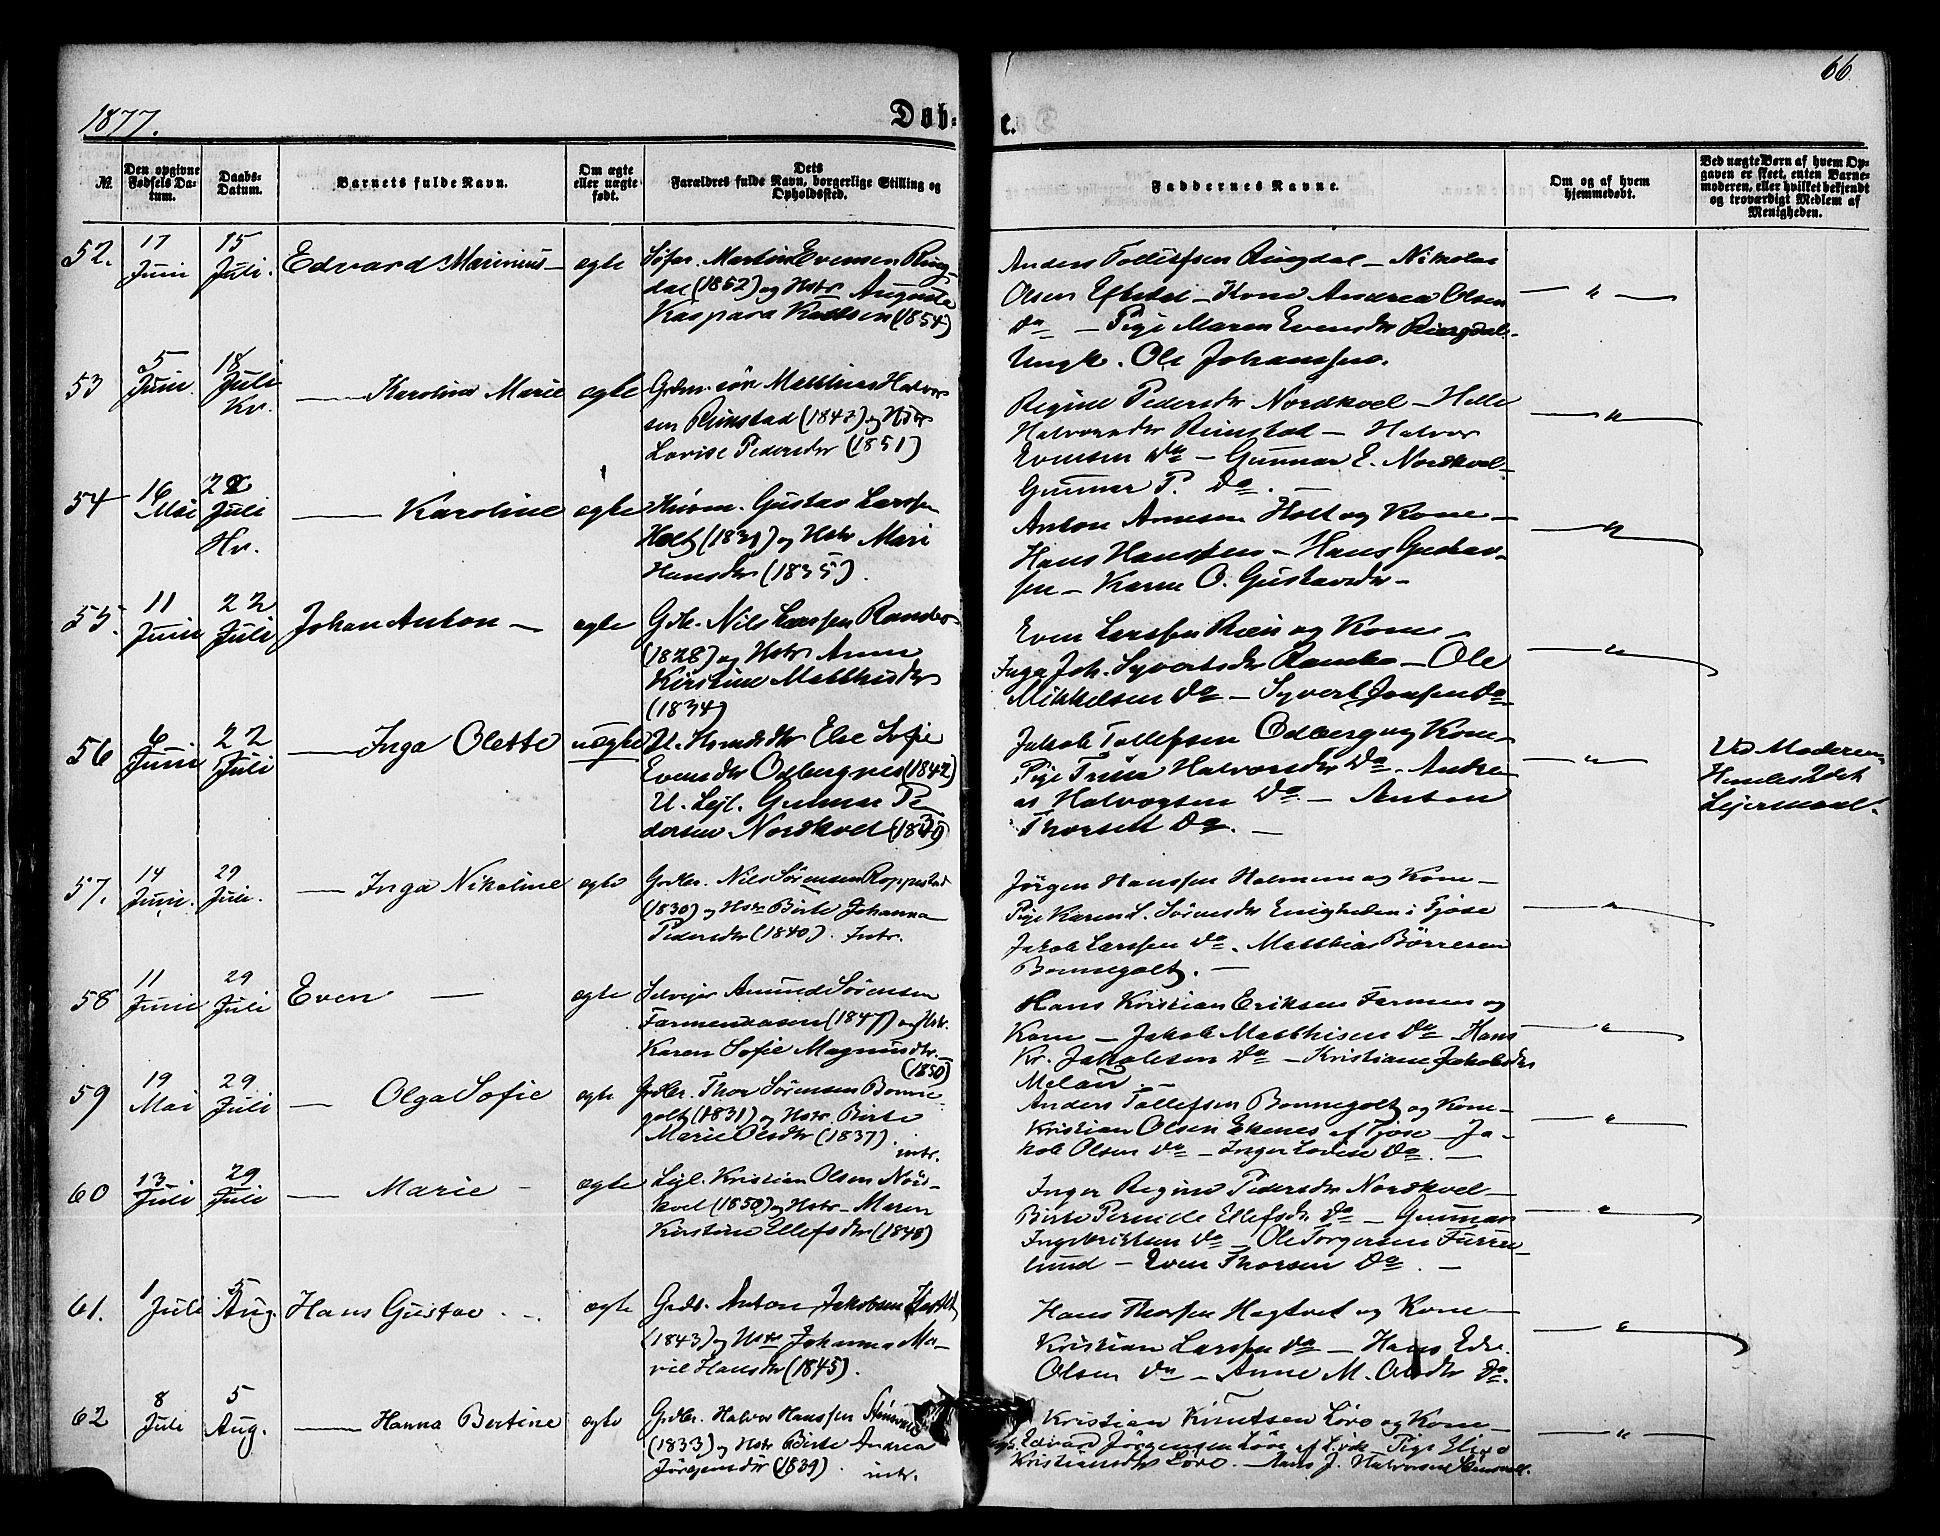 1877.
Døb-
e.
66.
№.
Den opgivne Fødsels Datum.
Daabs-Datum.
Barnets fulde Navn.
Om ægte eller uægte født.
Dets Forældres fulde Navn, borgerlige Stilling og Opholdssted.
Faddernes Navne.
Om og af hvem hjemmedøbt.
Ved uægte Børn af hvem Opgaven er skeet, enten Barnemoderen, eller hvilket bekjendt og troværdigt Medlem af Menigheden.
52. 17 Juni 15 Juli. Edvard Marinius — ægte
Søfar. Martin Evensen Ring-
dal (1852) og Hstr Augusta
Kaspara (1854)
Anders Tollefsen Ringdal — Nikolai
Olsen Eftedal — Kone Andrea Olsen
Do — Pige Maren Evensdr Ringdal.
Ungk. Ole Johanssen.
53 5 Juni. 18 Juli Kv. — Karoline Marie ægte
Grdm. søn Matthias Halvor
sen Rimstad (1842) og Hstr
Lovise Pedersdr (1851)
Regine Pedersdr Nordkvel — Helle
Halvorsdr Rimstad — Halvor
Evensen Do — Gunnar E. Nordkvel —
Gunnar P. Do.
54 16 Mai 22 Juli Hv. — Karoline ægte
Husm. Gustav Larssen
Holt (1831) og Hstr Mari
Hansdtr (1835).
Anton Arnesen Holt og Kone —
Hans Hanssen — Hans Gustav-
sen — Karen O. Gustavsdr —
55. 11 Juni 22 Juli Johan Anton — ægte
Grdbr. Nils Larssen
(1828) og Hstr Anne
Kirstine Matthisdtr
(1834)
Even Larssen Ræn og Kone —
Inga Joh. Syvertsdr — Ole
Mikkelsen Do — Syvert Jensen Do
56 6 Juni 22 Juli — Inga Olette uægte
U. Else Sofie
Evensdtr Odberg (1842)
U. Lejl. Gunnar Pe-
dersen Nordkvel (1849)
Jakob Tollefsen Odberg og Kone —
Pige Trine Halvorsdr Do. Andre-
as Halvorsen Do. — Anton
Thorsen Do. —
Ved Moderen
Hendes 2det
Lejermaal.
57. 14 Juni. 29 Juli. — Inga Nikoline ægte
Grdbr. Nils Sørensen Roppestad
(1830) og Hstr Birte Johanna
Pedersdtr (1840). Intr.
Jørgen Hanssen Holmen og Kone —
Pige Karen L. Sørensdr Enigheden i Tjose
Jakob Larssen Do. Matthias Børresen
Bonnegolt. —
58 11 Juni 29 Juli Even — ægte
Selvejer Amund Sørensen
Farmenaasen (1847) og Hstr.
Karen Sofie Magnusdtr.
(1850)
Hans Kristian Eriksen Farmen og
Kone — Jakob Matthisen Do — Hans
Kr. Jakobsen Do — Kristiane Jakobsdtr
Melau.
59 19 Mai 29 Juli — Olga Sofie ægte
Grdbr. Thor Sørensen Bonne-
golt (1831) og Hstr. Birte
Marie Olsdtr (1837).
intr.
Anders Tollefsen Bonnegolt og Kone —
Kristian Olsen Ekenes af Tjose — Ja-
kob Olsen Do — Inger Lovise Do. —
60 13 Juli 29 Juli — Marie — ægte
Lejl. Kristian Olsen Nor-
kvel (1850) og Hstr. Maren
Kirstine Ellefsdtr (1848)
Inger Regine Pedersdr Nordkvel —
Birte Pernille Ellefsdr Do — Gunnar
Ingebriktsen Do — Ole Torgersen Furre-
lund — Even Thorsen Do. —
61. 1 Juli 5 Aug. Hans Gustav —. ægte
Grdb. Anton Jakobsen
(1843) og Hstr Johanna Ma-
rie Hansdtr (1845).
Hans Thorsen Hagtvet og Kone —
Kristian Larssen Do — Hans Edv.
Olsen Do — Anne M. Olsdtr Do.
62 8 Juli 5 Aug. — Hanna Bertine ægte
Grdbr. Halvor Hanssen
(1833) og Hstr Birte Andrea
Jørgensdtr (1839). intr.
Kristian Knutsen Løve og Kone —
Edvard Jørgensen Løve — Pige
Kristiansdtr Løve. — Hans J. Halvorsen